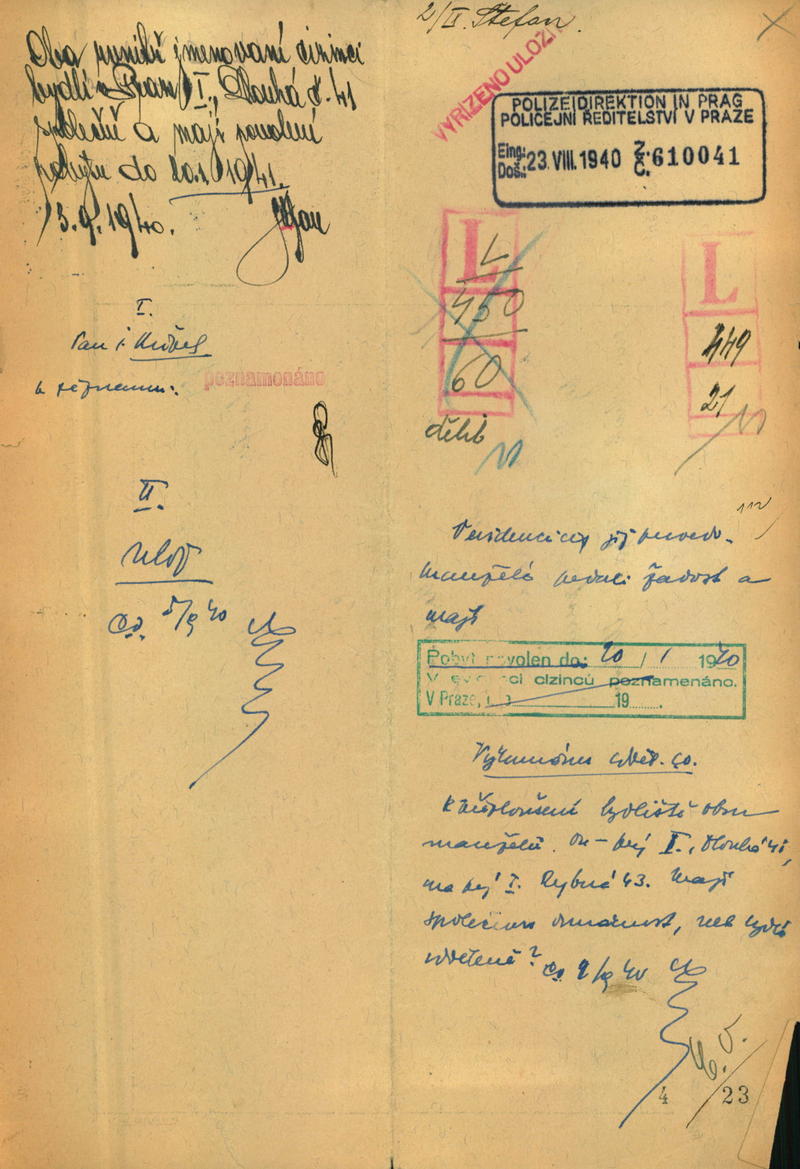 Oba jmenovaní cizinci
bydlí Praze I., Dlouhá č. 41
společně a mají povolení
pobytu do 20.1.1941.
3.9.1940.
I.
Pan
k seznamu:
poznamenáno
II.
Ulož
5/9 40
2/IX. Štefan.
VYŘÍZENO ULOŽ
POLIZEIDIREKTION IN PRAG
POLICEJNÍ ŘEDITELSTVÍ V PRAZE
Eing.: Doš.: 23. VIII. 1940 Z. Č. 610041
L
450
60
L
449
21
112
již
manželé podali žádost a
mají
Pobyt povolen do: 20 / 1 1940
V evidenci cizinců poznamenáno.
V Praze, 19
odděl.
bydliště obou
manželů. On – prý I., Dlouhá 41,
ona prý I. Rybná 43. Mají
společnou domácnost, neb bydlí
odděleně?
2/9 40
4 23